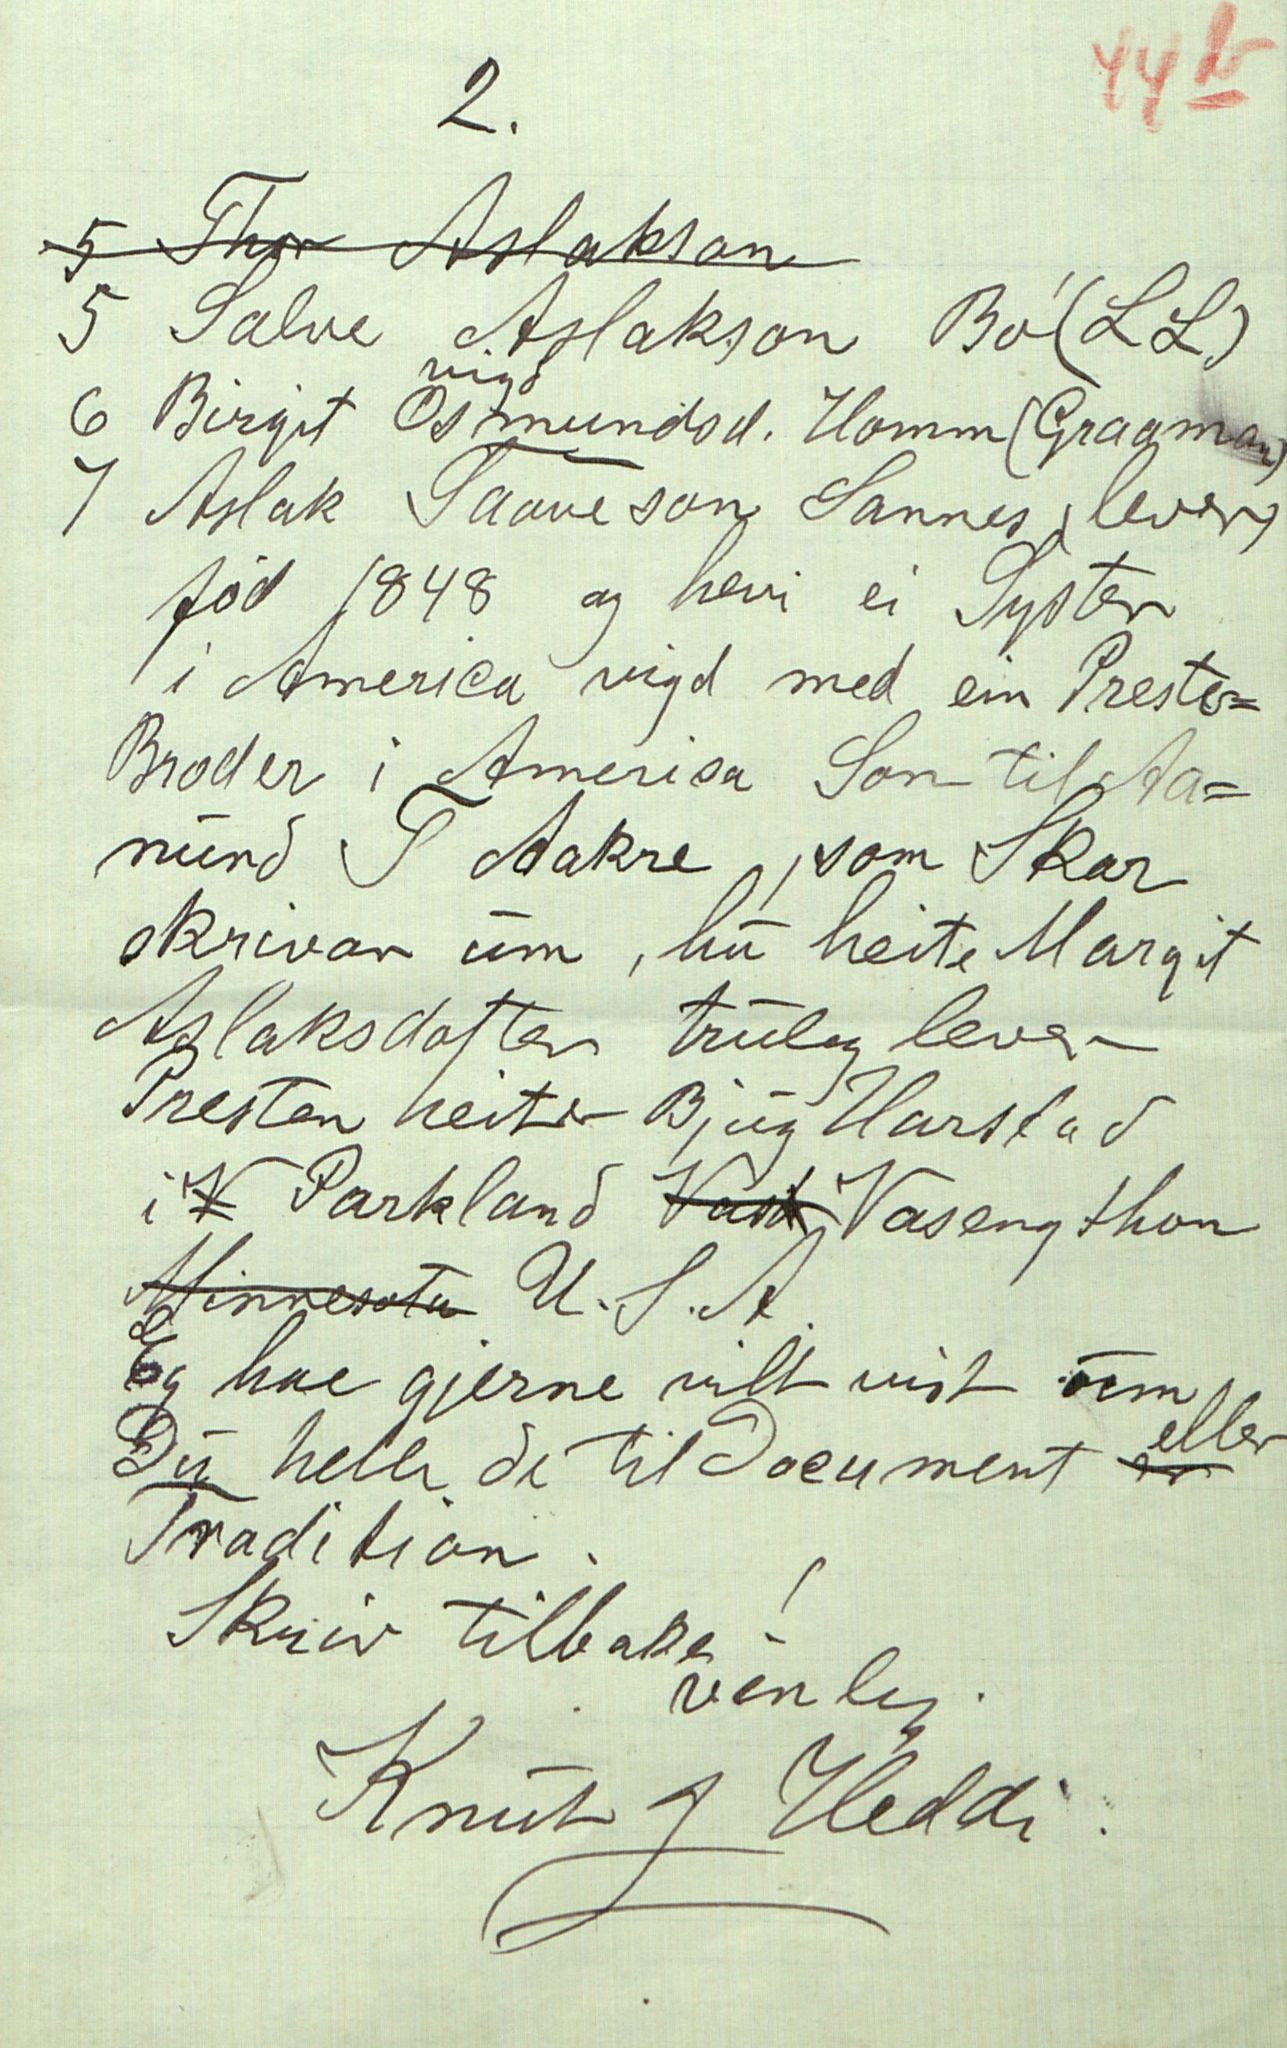 44 b
2.
5 Thor Aslakson
5 Salve Aslakson Bó (LL)
vigd
6 Birgit Osmundsd. Homm (Graaman)
7 Aslak Taaveson Sannes, lever,
fód 1848 og hevi ei Syster
i America vigd med ein Preste=
Broder i America Son til Aa=
nŭnd T Aakre, som Skar
skrivar ŭm, hŭ heite Margit
Aslaksdotter trŭleg lever
Presten heiter Bjŭg Harstad
i Parkland Vasengthon
Minnesota U.S.A.
Eg hae gjerne vilt vist ŭm
Dŭ helle de til Document eller
Tradition.
Skriv tilbake!
venleg.
Knŭt J Heddi.